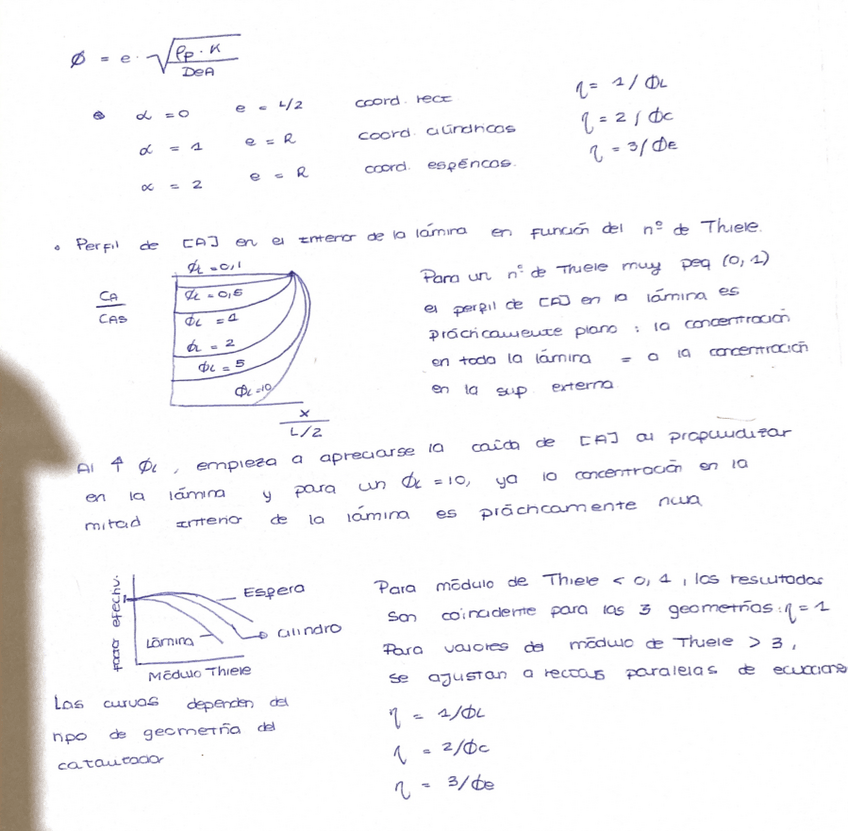 Ø = e · √(ρp · K / DeA)
α = 0 e = L/2 coord. rect η = 1/ΦL
α = 1 e = R coord. cilíndricas η = 2/Φc
α = 2 e = R coord. esféricas. η = 3/Φe
• Perfil de [A] en el interior de la lámina en función del nº de Thiele.
CA/CAS
ΦL = 0,1
ΦL = 0,5
ΦL = 1
ΦL = 2
ΦL = 5
ΦL = 10
x
L/2
Para un nº de Thiele muy peq (0,1)
el perfil de [A] en la lámina es
prácticamente plano : la concentración
en toda la lámina = a la concentración
en la sup externa
Al ↑ ΦL, empieza a apreciarse la caída de [A] al profundizar
en la lámina y para un ΦL = 10, ya la concentración en la
mitad interio de la lámina es prácticamente nula
factor efectiv.
1
Espera
Cilindro
Lámina
Módulo Thiele
Las curvas dependen del
tipo de geometría del
catalizador
Para módulo de Thiele < 0,1, los resultados
son coincidente para las 3 geometrías: η = 1
Para valores del módulo de Thiele > 3,
se ajustan a rectas paralelas de ecuaciones
η = 1/ΦL
η = 2/Φc
η = 3/Φe